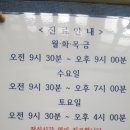 < 진 료 안 내 >
월 화 목 금
오전 9시 30분 ~ 오후 9시 00분
수요일
오전 9시 30분 ~ 오후 7시 00분
토요일
오전 9시 30분 ~ 오후 4시 00분